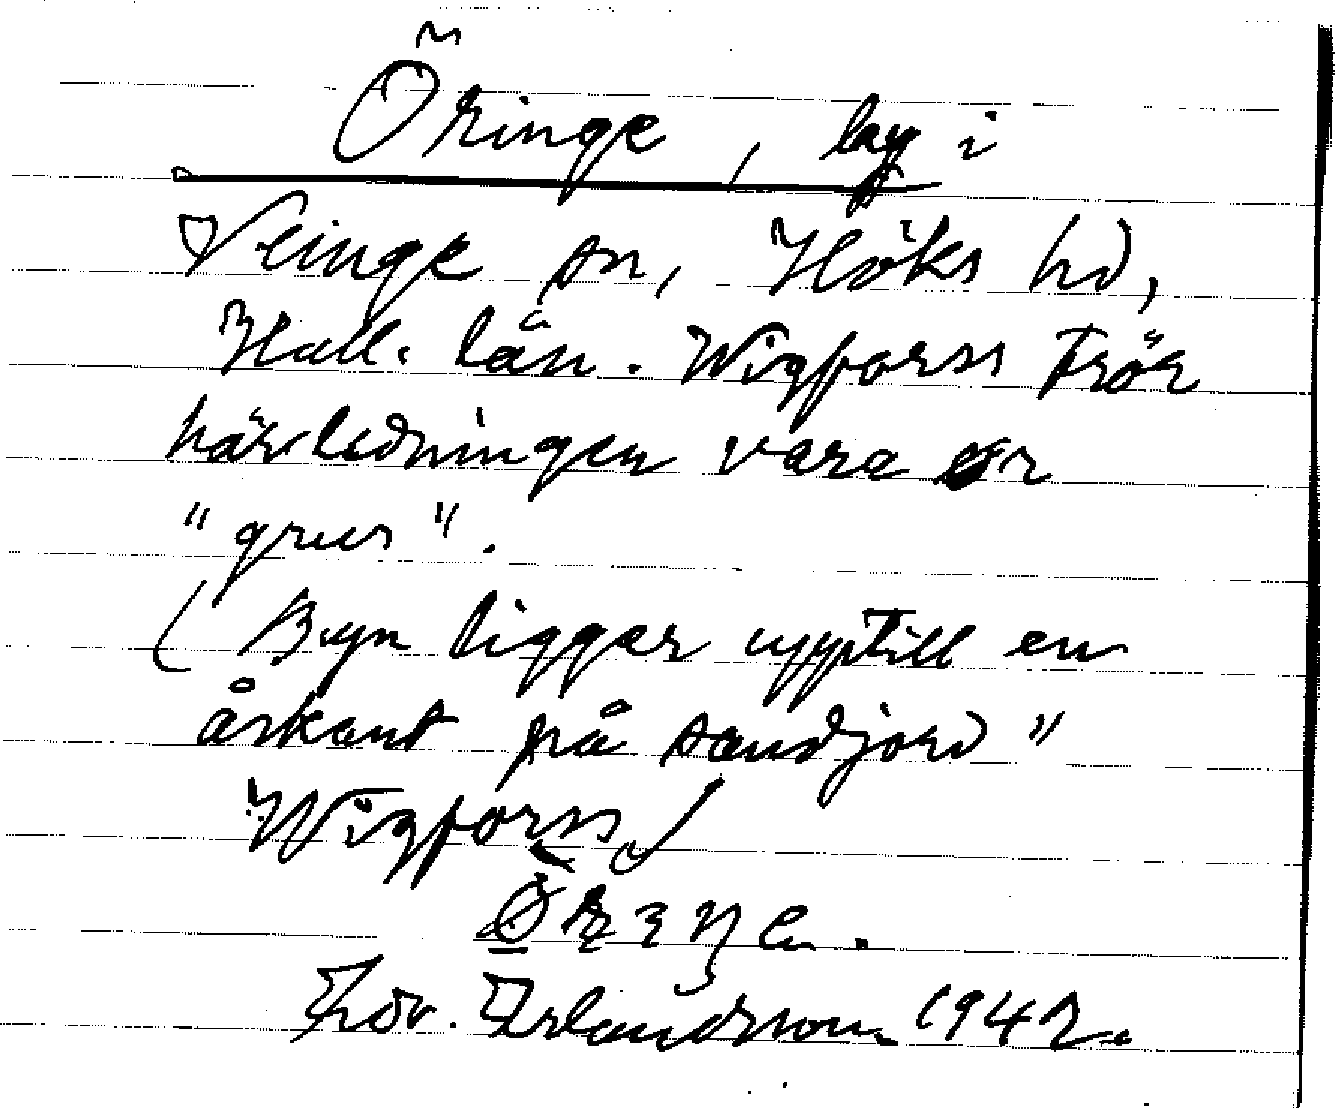 Öringe, låg i
Veinge sn, Höks hd,
Hall. län. Wigforss tror
härledningen vara ør
"grus".
(Byn ligger upptill en
åskant på sandjord"
Wigforss)
Edv. Erlandsson 1942.